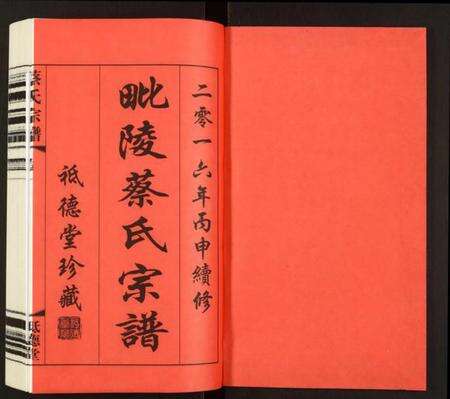 二零一六年丙申續修
毗陵蔡氏宗譜
祗德堂珍藏
蔡氏宗譜
祗德堂